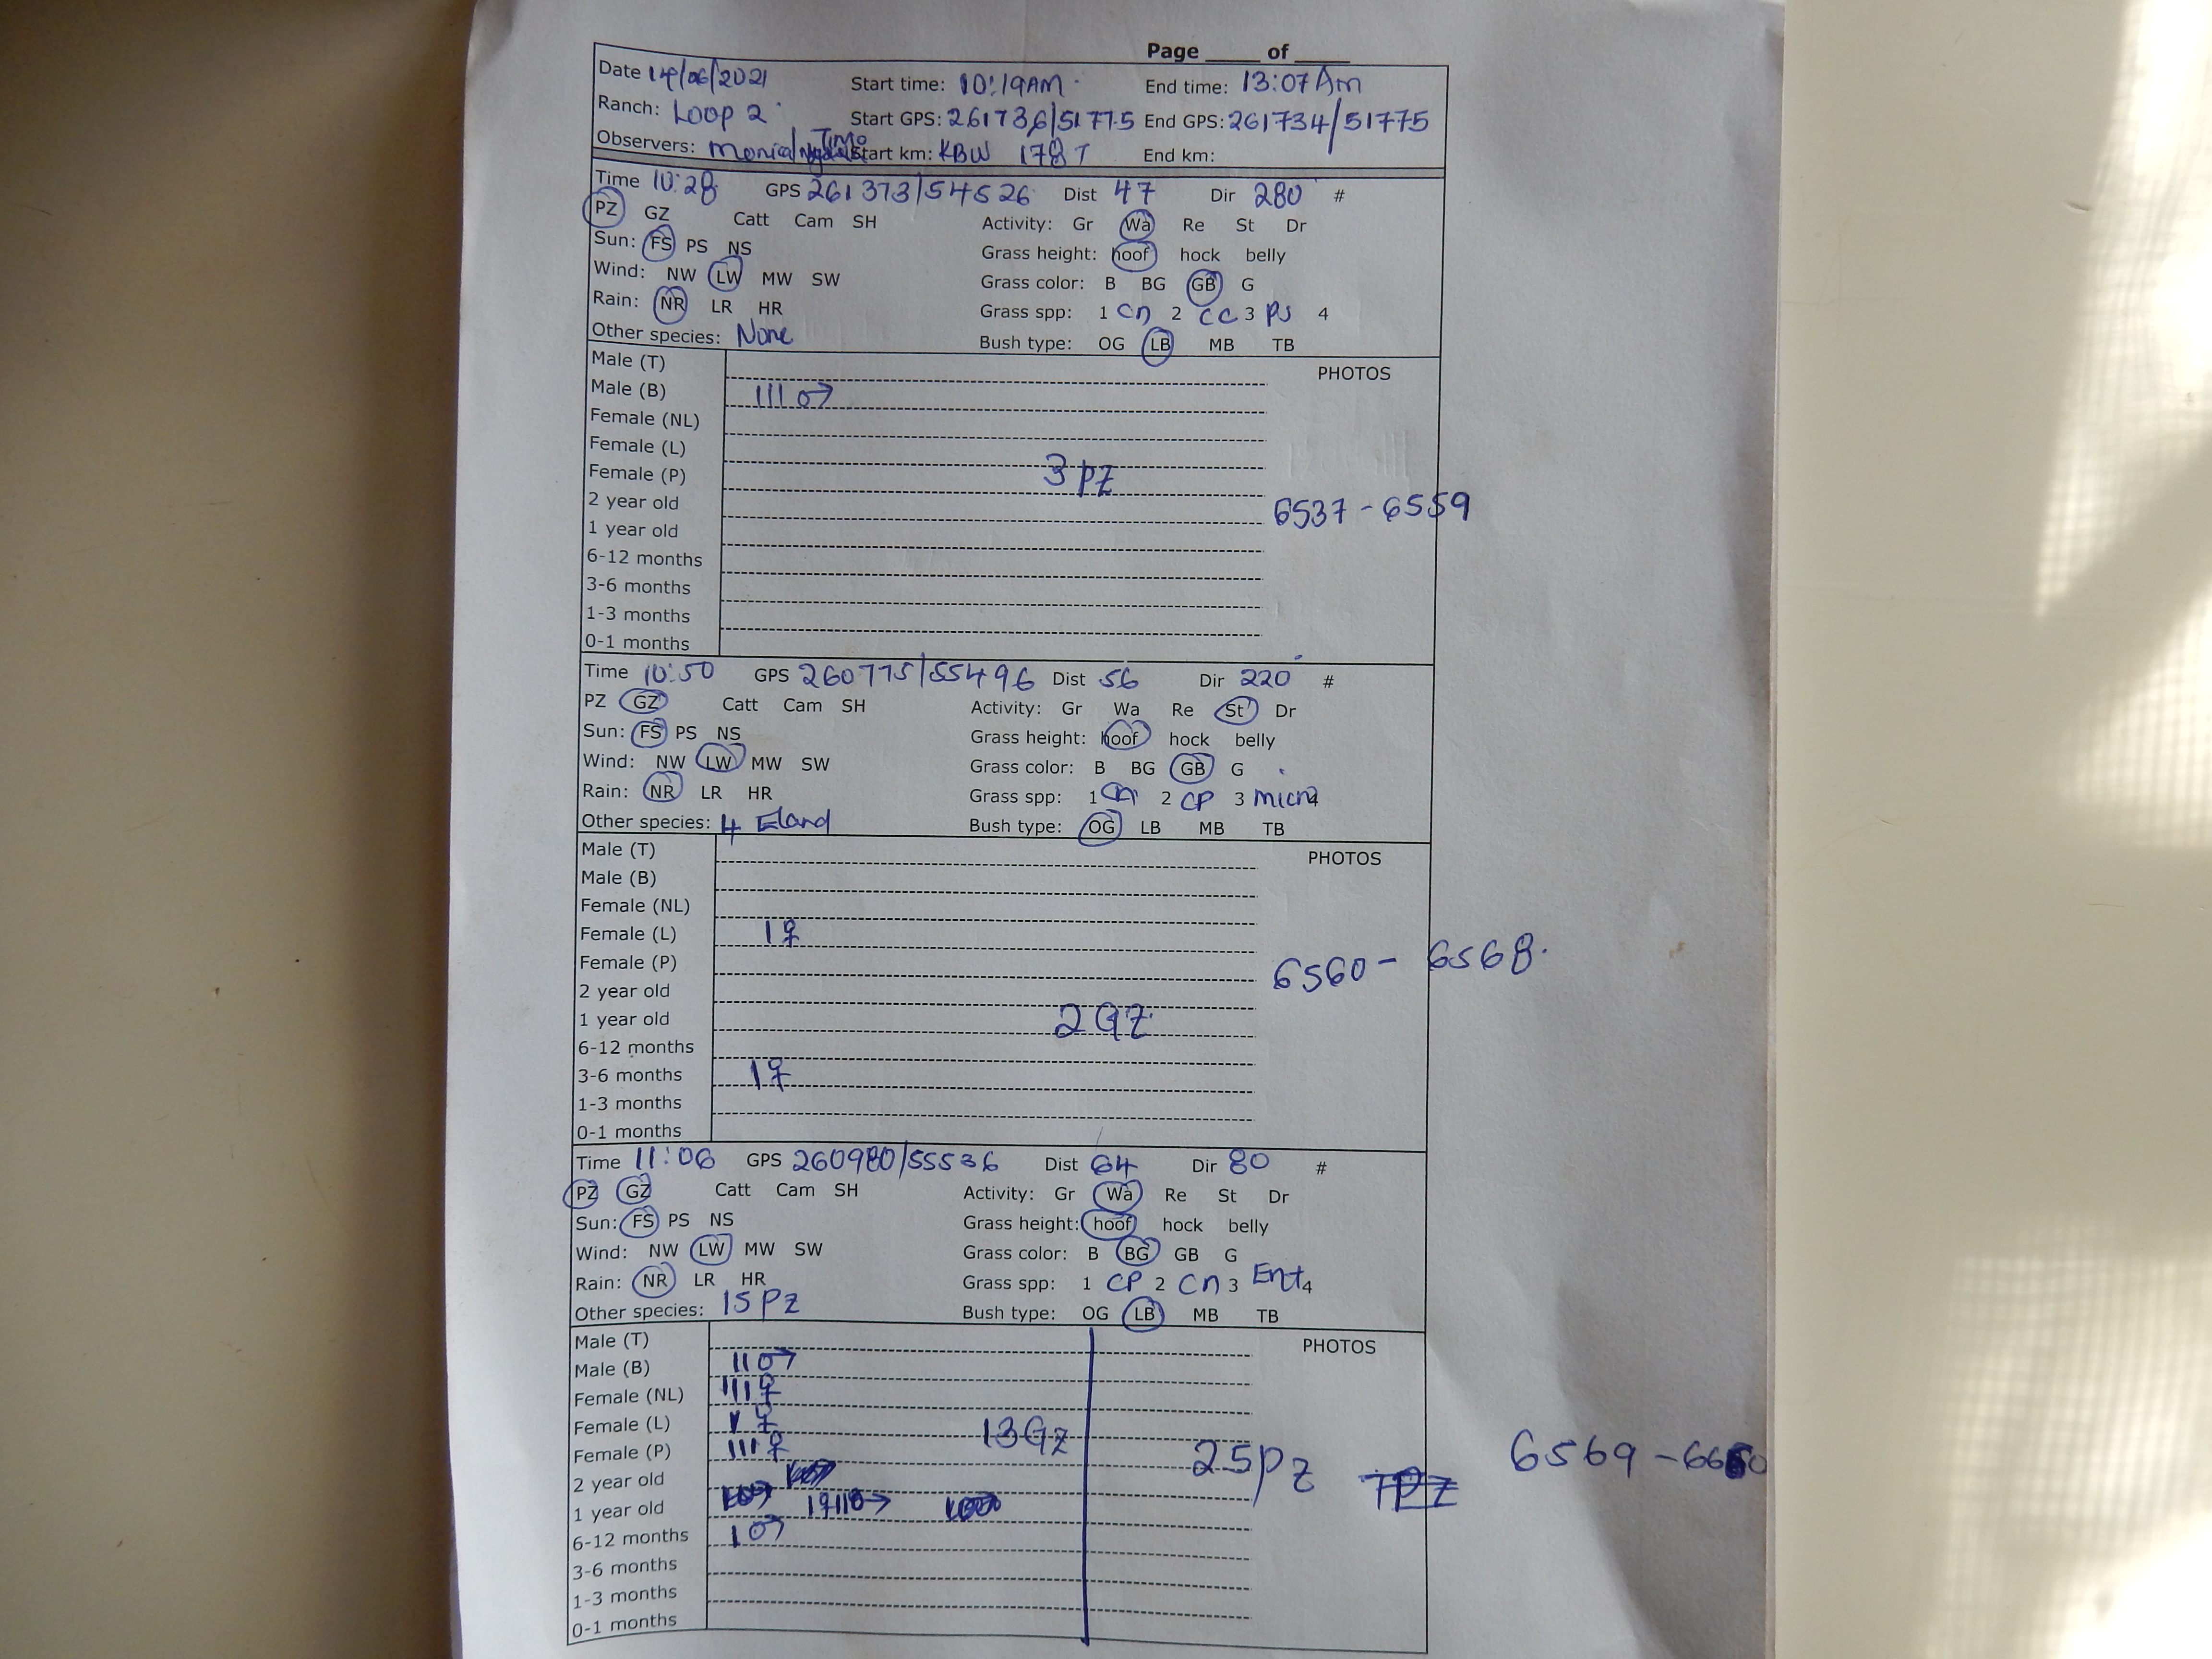 Page ____ of ____
Date 14/06/2021 Start time: 10:19AM End time: 13:07 Am
Ranch: Loop 2 Start GPS: 261736/51775 End GPS: 261734/51775
Observers: Monica/ Timo Start km: KBW 178T End km:
Time 10:28 GPS 261373/54526 Dist 47 Dir 280 #
PZ GZ Catt Cam SH Activity: Gr Wa Re St Dr
Sun: FS PS NS Grass height: hoof hock belly
Wind: NW LW MW SW Grass color: B BG GB G
Rain: NR LR HR Grass spp: 1 Cn 2 CC 3 PS 4
Other species: None Bush type: OG LB MB TB
Male (T) PHOTOS
Male (B) III ♂
Female (NL)
Female (L)
Female (P) 3 PZ
2 year old 6537 - 6559
1 year old
6-12 months
3-6 months
1-3 months
0-1 months
Time 10:50 GPS 260775/55496 Dist 56 Dir 220 #
PZ GZ Catt Cam SH Activity: Gr Wa Re St Dr
Sun: FS PS NS Grass height: hoof hock belly
Wind: NW LW MW SW Grass color: B BG GB G
Rain: NR LR HR Grass spp: 1 Cn 2 CP 3 micro 4
Other species: 4 Eland Bush type: OG LB MB TB
Male (T) PHOTOS
Male (B)
Female (NL)
Female (L) I ♀
Female (P) 6560 - 6568.
2 year old
1 year old 2GZ
6-12 months
3-6 months I ♀
1-3 months
0-1 months
Time 11:06 GPS 260980/55536 Dist 64 Dir 80 #
PZ GZ Catt Cam SH Activity: Gr Wa Re St Dr
Sun: FS PS NS Grass height: hoof hock belly
Wind: NW LW MW SW Grass color: B BG GB G
Rain: NR LR HR Grass spp: 1 CP 2 Cn 3 Ent 4
Other species: 15 PZ Bush type: OG LB MB TB
Male (T) PHOTOS
Male (B) II ♂
Female (NL) III ♀
Female (L) I ♀ 13GZ
Female (P) III ♀ 25PZ 6569 -
2 year old 7PZ
1 year old I♀ II♂
6-12 months I ♂
3-6 months
1-3 months
0-1 months